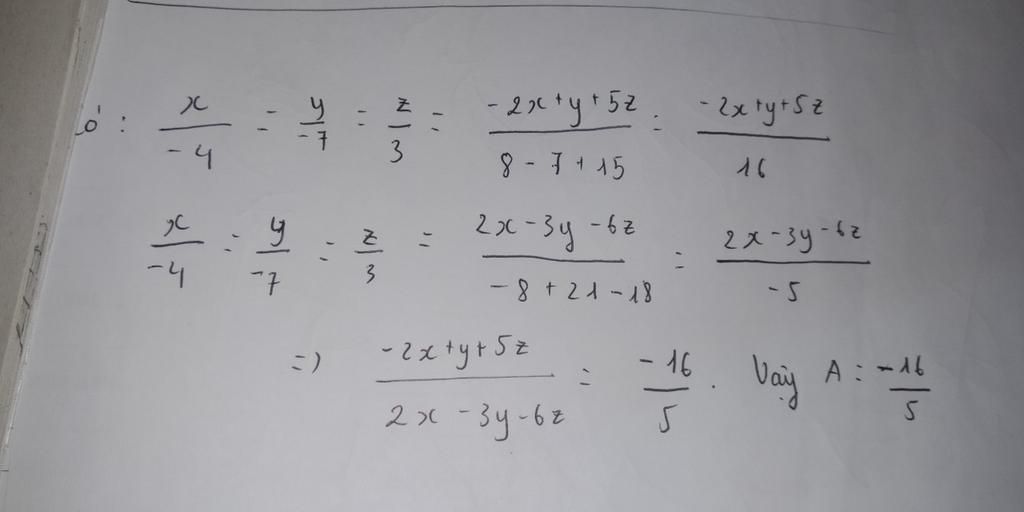 ó: x/-4 = y/-7 = z/3 = (-2x+y+5z)/(8-7+15) = (-2x+y+5z)/16
x/-4 = y/-7 = z/3 = (2x-3y-6z)/(-8+21-18) = (2x-3y-6z)/-5
=> (-2x+y+5z)/(2x-3y-6z) = -16/5. Vậy A = -16/5